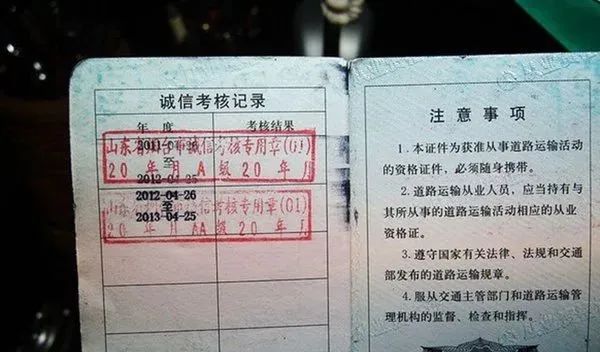 诚信考核记录
年 度 考核结果
2011-04-26
山东省烟台市诚信考核专用章(01)
至
20 年 月 A 级 20 年 月
2012-04-25
2012-04-26
山东省 诚信考核专用章(01)
至
20 年 月 AA 级 20 年 月
2013-04-25
注 意 事 项
1.本证件为获准从事道路运输活动
的资格证件，必须随身携带。
2.道路运输从业人员，应当持有与
其所从事的道路运输活动相应的从业
资格证。
3.遵守国家有关法律、法规和交通
部发布的道路运输规章。
4.服从交通主管部门和道路运输管
理机构的监督、检查和指挥。